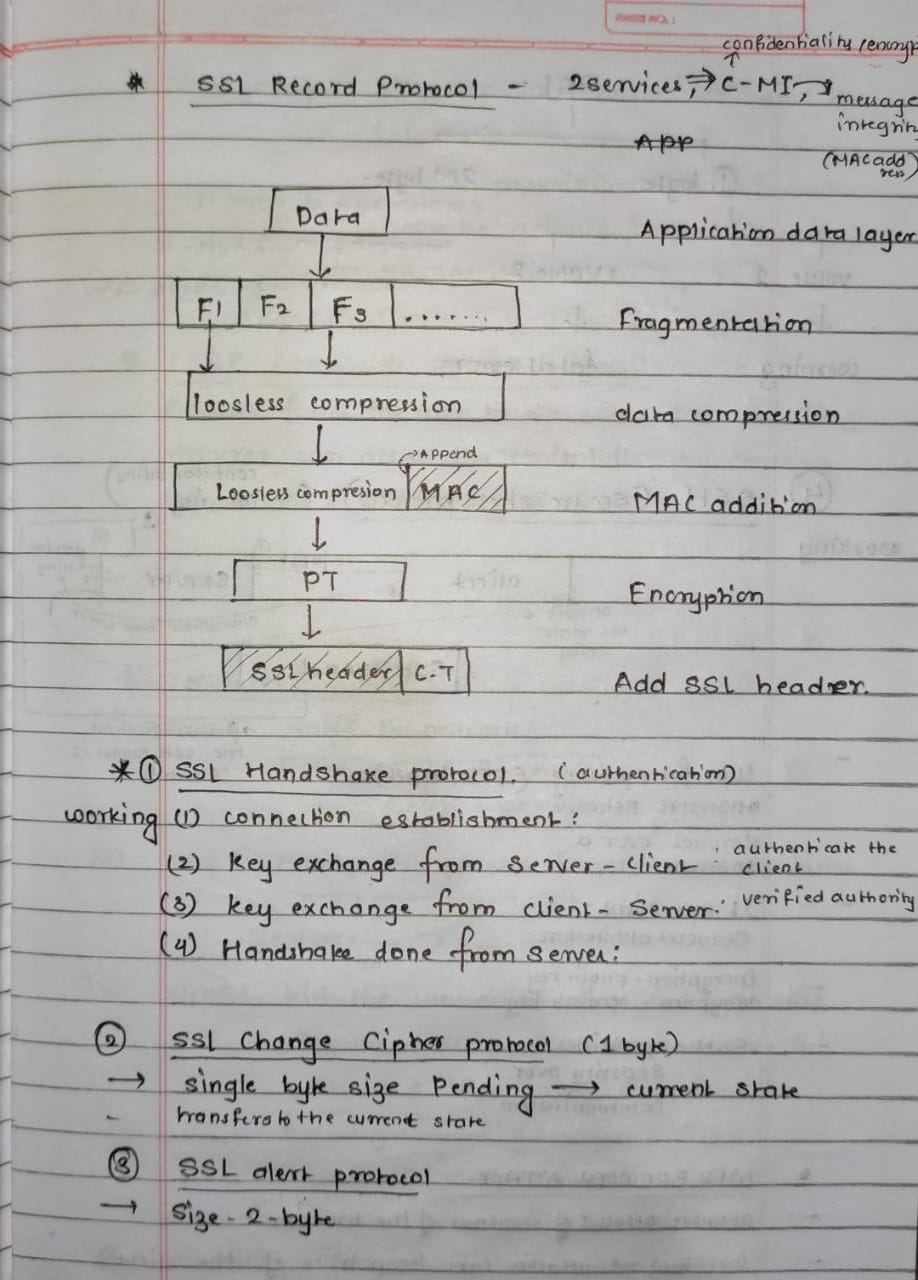 PAGE NO.:
confidentiality (encryp
* SSL Record Protocol - 2 services, ⇒ C-MI, → message
integrity
APP
(MAC add
ress)
Data
Application data layer
F1 F2 F3 .......
Fragmentation
loosless compression
data compression
Append
Loosless compresion MAC
MAC addition
PT
Encryption
SSL header C.T
Add SSL header.
* ① SSL Handshake protocol. (authentication)
working (1) connection establishment:
(2) Key exchange from server - client. authenticate the
client
(3) key exchange from client - Server: verified authority
(4) Handshake done from server:
② SSL Change Cipher protocol (1 byte)
→ single byte size Pending → current state
- transfers to the current state
③ SSL alert protocol
→ Size - 2 - byte